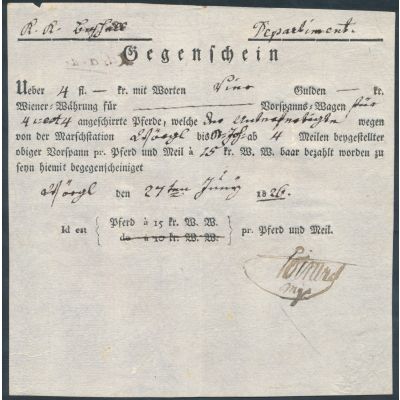 K. K. Departiment.
Gegenschein
Ueber 4 fl. — kr. mit Worten Vier Gulden — kr.
Wiener-Währung für Vorspanns-Wagen für
4 angeschirrte Pferde, welche der Unterfertigte wegen
von der Marschstation Wörgl bis ab 4 Meilen beygestellter
obiger Vorspann pr. Pferd und Meil à 15 kr. W. W. baar bezahlt worden zu
seyn hiemit begegenscheiniget
Wörgl den 27ten Juny 1826.
Id est { Pferd à 15 kr. W. W. } pr. Pferd und Meil.
do à 10 kr. W. W.